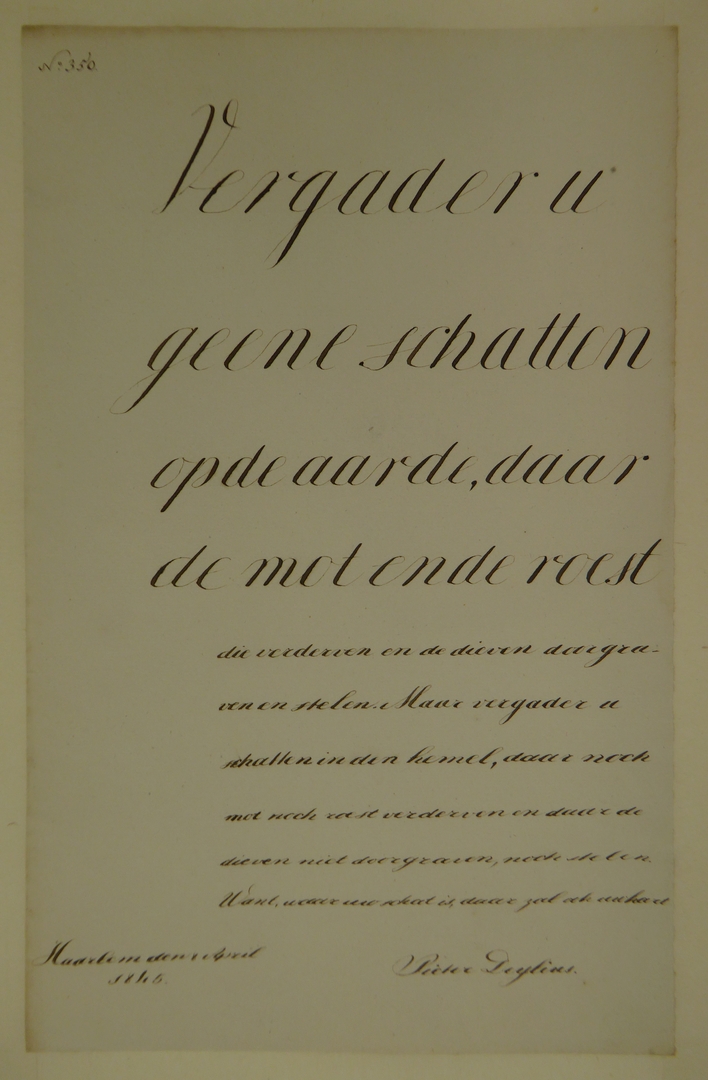 No. 350.
Vergader u
geene schatten
op de aarde, daar
de mot en de roest
die verderven en de dieven doorgra-
ven en stelen. Maar vergader u
schatten in den hemel, daar noch
mot noch roest verderven en daar de
dieven niet doorgraven, noch stelen.
Want, waar uw schat is, daar zal ook uw hart
Haarlem den 1 April
Pieter
1846.